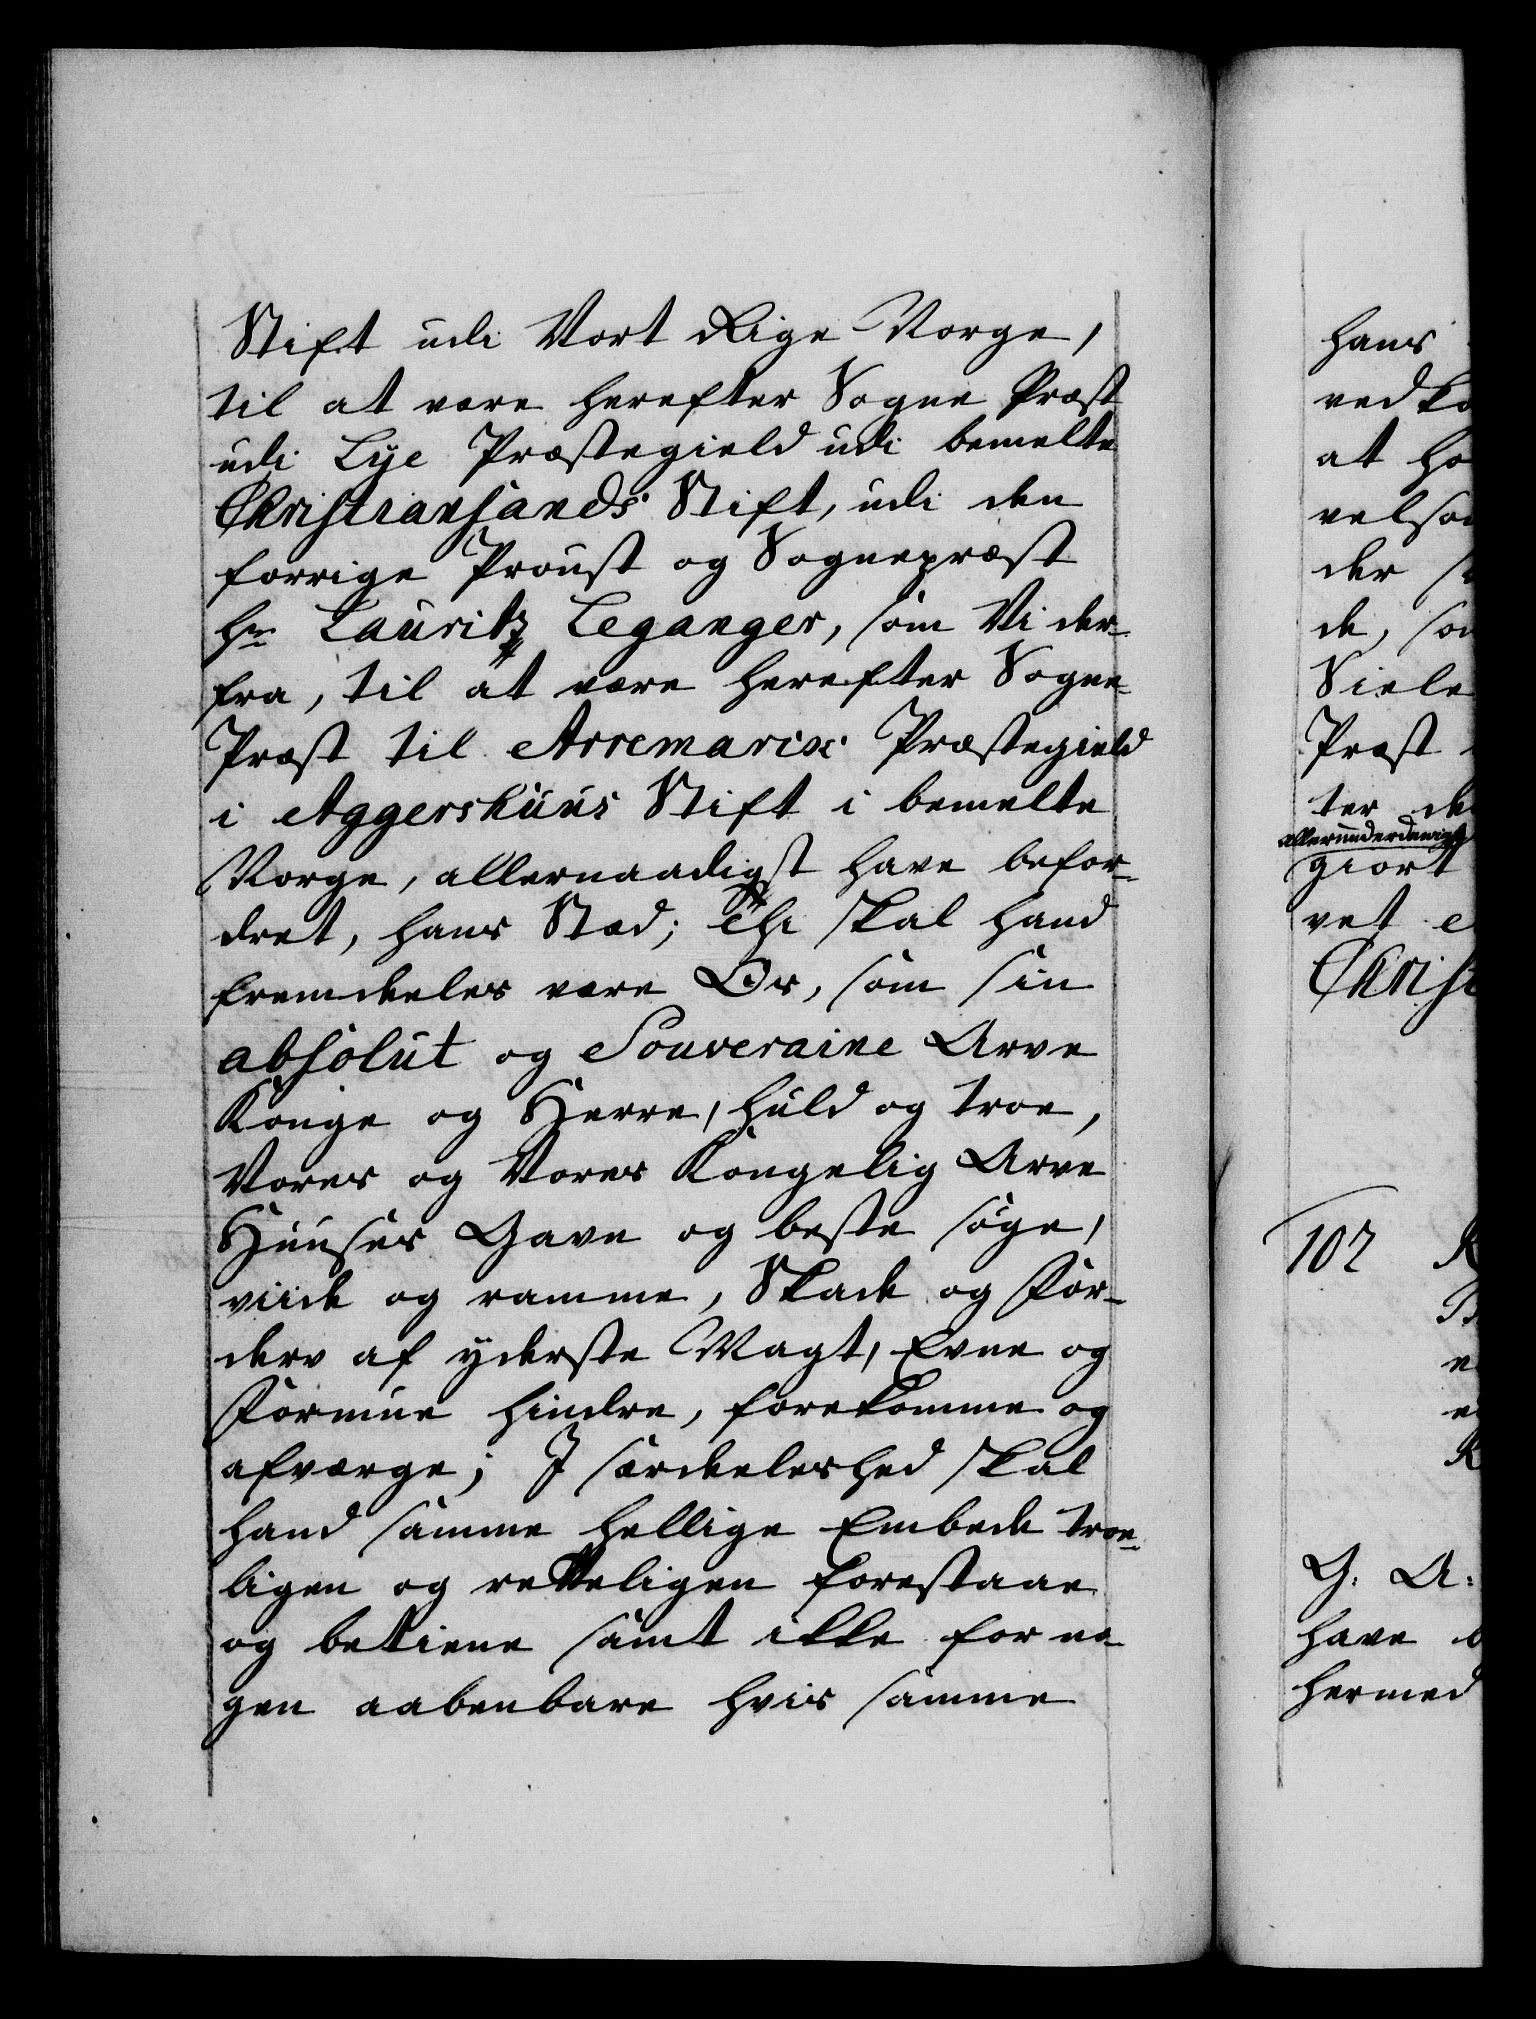 Stift udi Vort Rige Norge,
til at være herefter Sogne Præst
udi Lye Præstegield udi bemelte
Christiansands Stift, udi den
forrige Proust og Sognepræst
Hr Lauritz Leganger, som Vi der-
fra, til at være herefter Sogne-
Præst til Arremarix Præstegield
i Aggershuus Stift i bemelte
Norge, allernaadigst have befor-
dret, hans Stæd; Thi skal hand
fremdeles være Os, som sin
absolut og Souveraine Arve
Konge og Herre, huld og troe,
Vores og Vores Kongelig Arve
Huuses Gavn og beste søge,
viide og ramme, Skade og For-
derv af yderste Magt, Evne og
Formue hindre, forekomme og
afværge; I særdeleshed skal
hand samme hellige Embede troe-
ligen og retteligen forestaae
og betiene samt ikke for no-
gen aabenbare hvis samme
hans
at
der
de,
Siele
Præst
ter
allerunderdanigst
giort
vet
107
G: A:
have
hermed